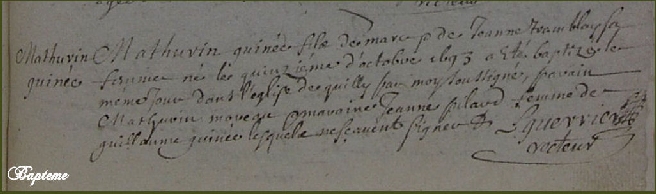 Mathuvin
quinée
Mathuvin quinée filz de marc & de Jeanne
femme né le quinzieme d'octobre 1693 a Eté baptizé le
meme Jour dans l'eglise de quilly par moy soussigné, parain
Mathurin & maraine Jeanne pilard femme de
guillaume quinée lesquels ne scavent signer
guerrier
recteur
Bapteme